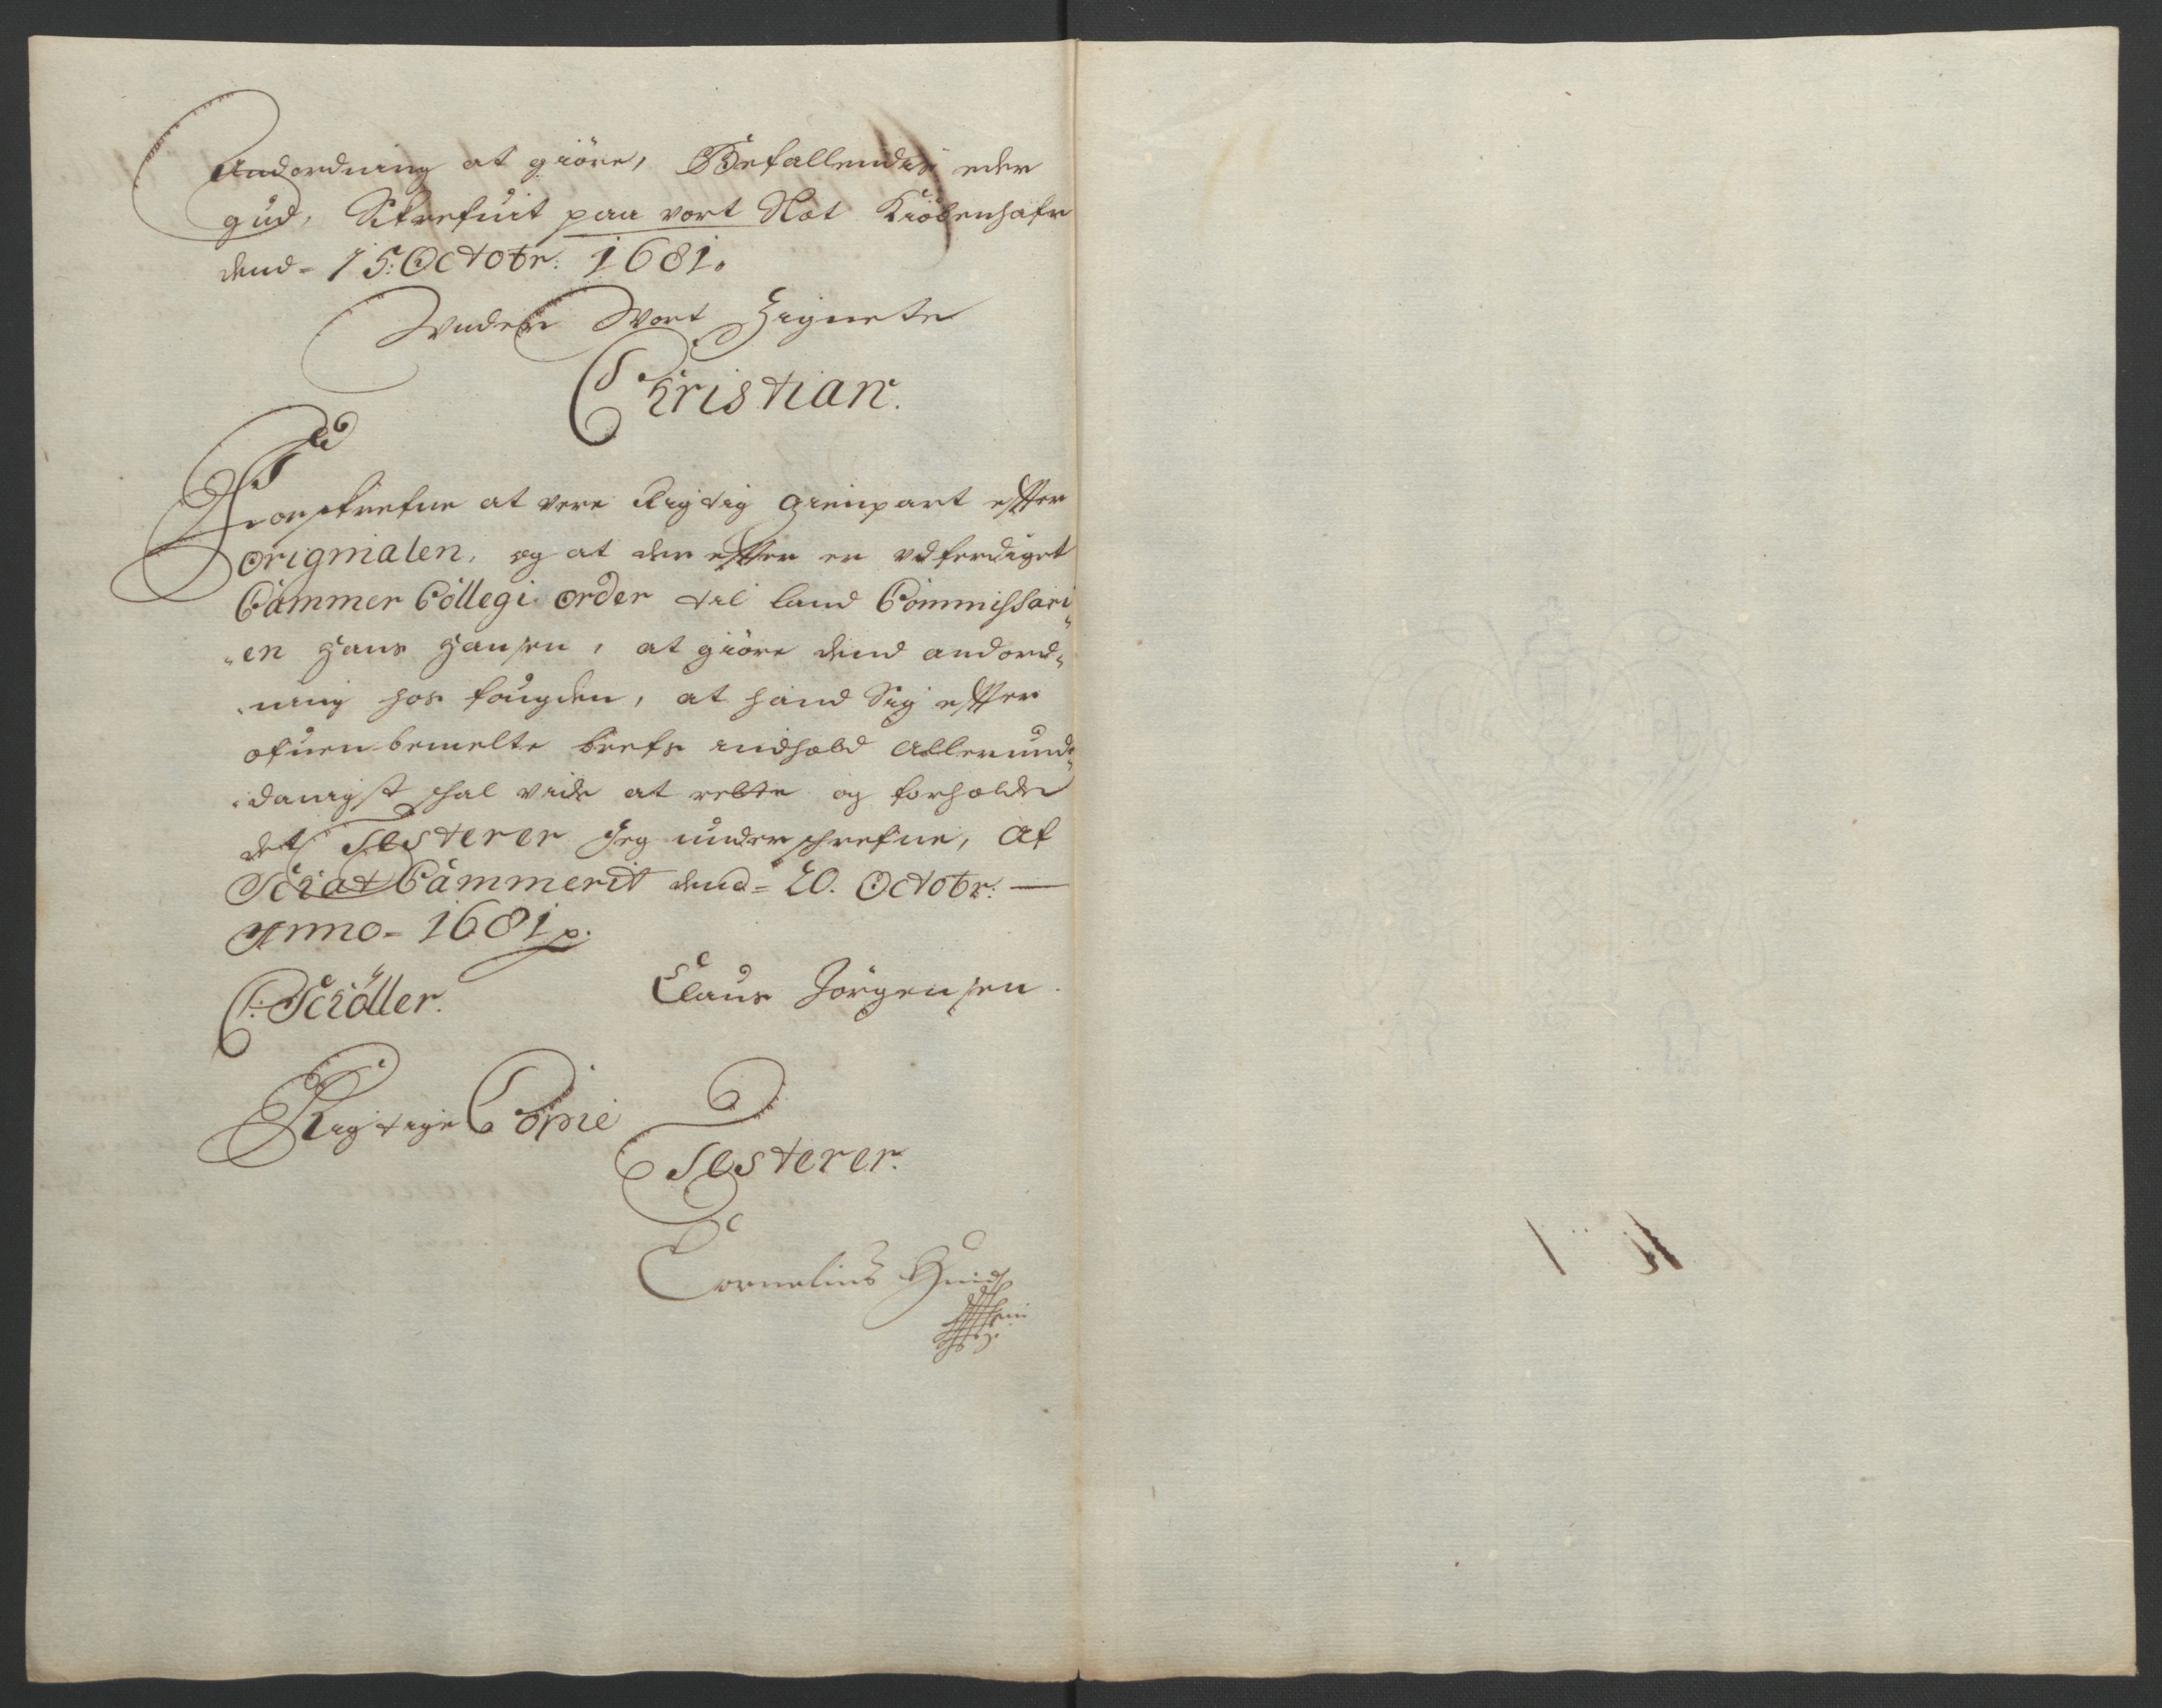 Andordning at giöre, Befallendis eder
gud, Skrefuit paa vort Slot Kiöbenhafn
dend= 15: Octobr: 1681.
Vnder Vort Zignete
Christian.
Forskrefne at vere Rigtig Gienpart effter
originalen, og at der effter er vdferdiget
Cammer Collegi order til land Commissari„
„en Hans Hansen, at giöre dend andord„
„ning hos fougden, at hand Sig effter
ofuenbemelte brefs indhold Allerund„
„danigst schal vide at rette og forholde
det Testerer Jeg underschrefne, Af
Schat Cammerit dend= 20. Octobr: —
Anno= 1681 p.
C: Schöller.
Claus Jörgensen.
Rigtige Copie
Testerer.
Cornelius